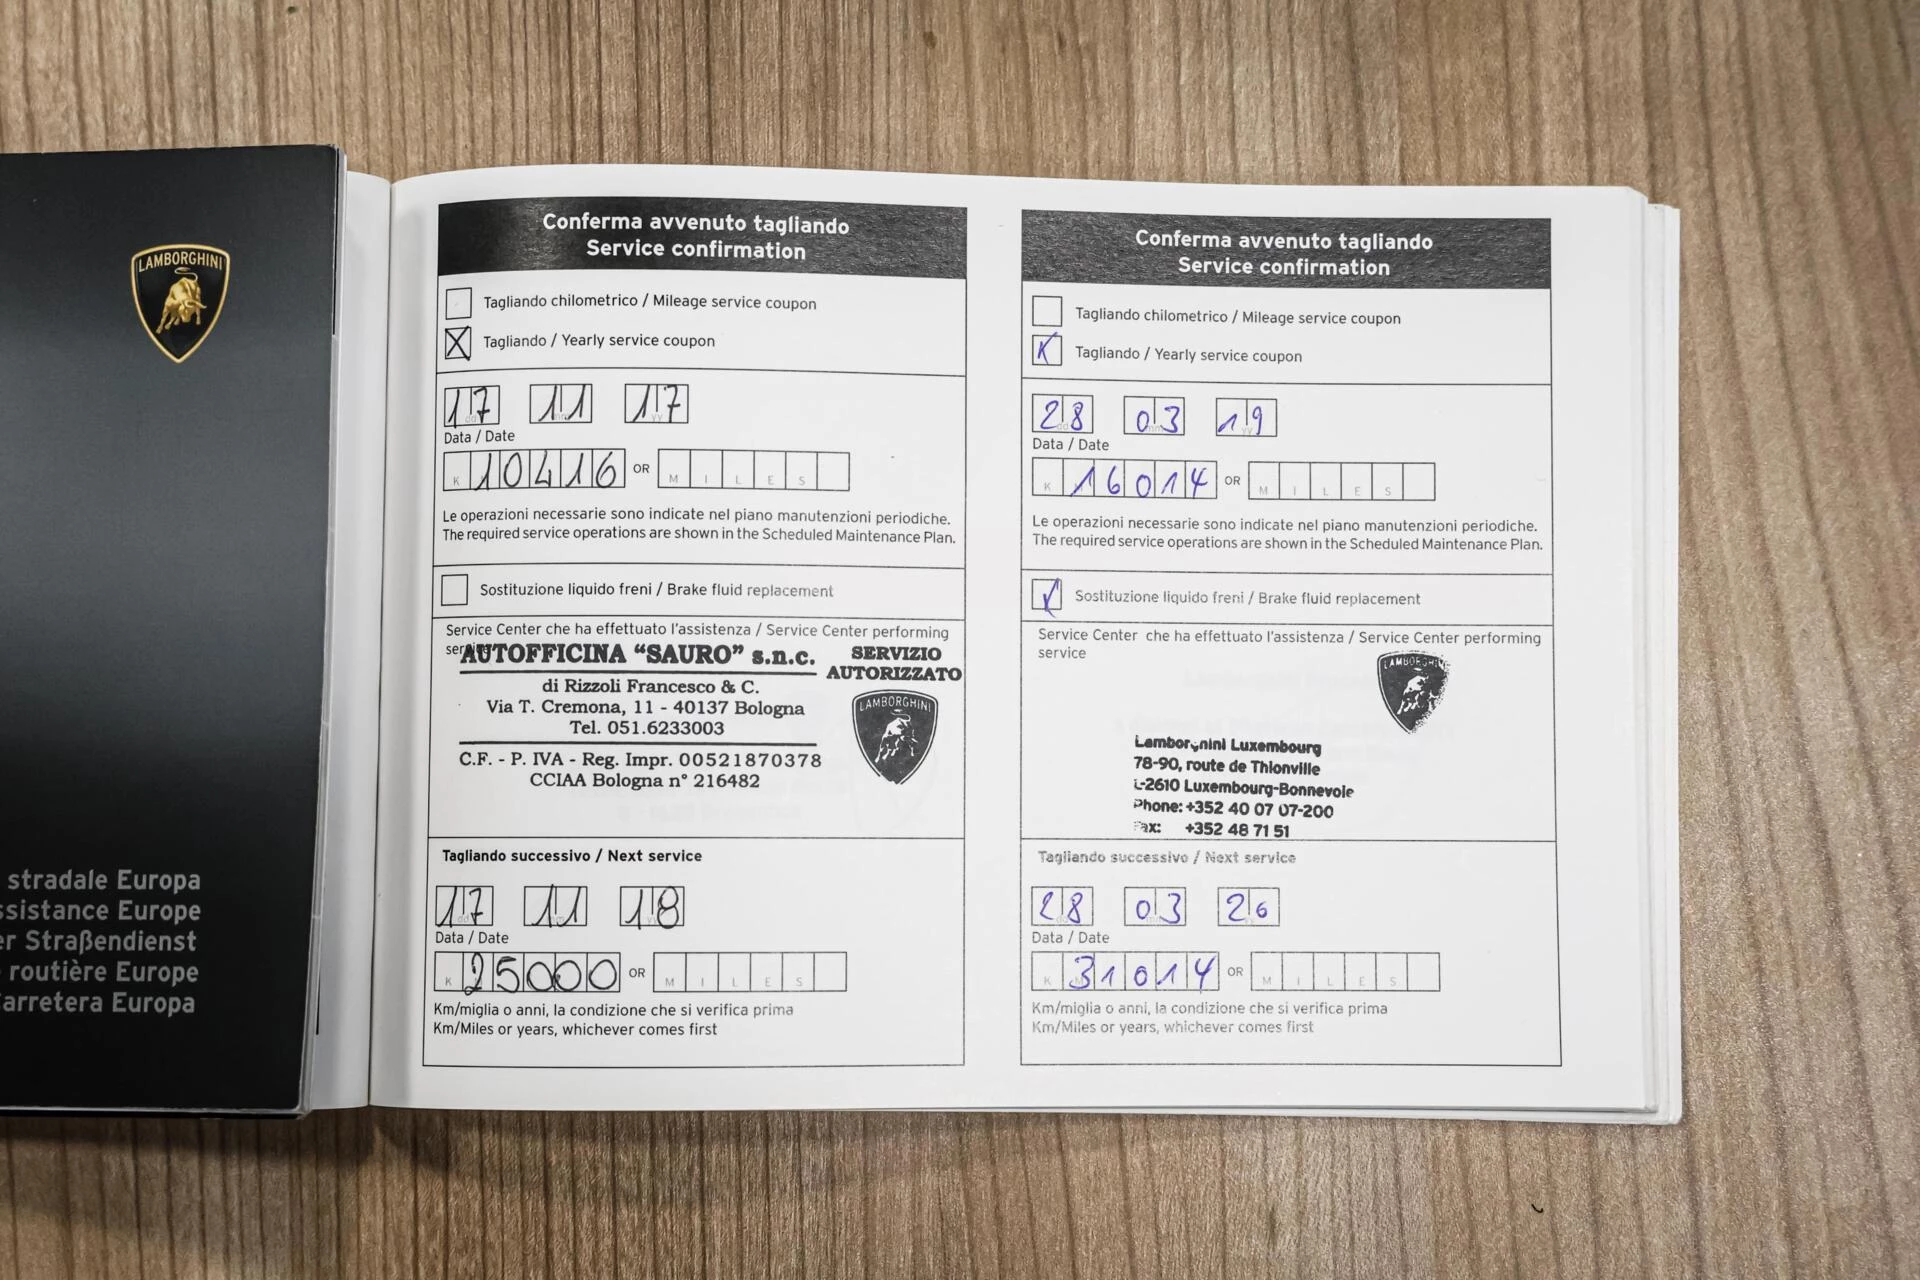 LAMBORGHINI
stradale Europa
ssistance Europe
er Straßendienst
routière Europe
arretera Europa
Conferma avvenuto tagliando
Service confirmation
Tagliando chilometrico / Mileage service coupon
X Tagliando / Yearly service coupon
17 11 17
Data / Date
K 10416 OR M I L E S
Le operazioni necessarie sono indicate nel piano manutenzioni periodiche.
The required service operations are shown in the Scheduled Maintenance Plan.
Sostituzione liquido freni / Brake fluid replacement
Service Center che ha effettuato l'assistenza / Service Center performing
service
AUTOFFICINA "SAURO" s.n.c.
di Rizzoli Francesco & C.
Via T. Cremona, 11 - 40137 Bologna
Tel. 051.6233003
C.F. - P. IVA - Reg. Impr. 00521870378
CCIAA Bologna n° 216482
SERVIZIO
AUTORIZZATO
LAMBORGHINI
Tagliando successivo / Next service
17 11 18
Data / Date
K 25000 OR M I L E S
Km/miglia o anni, la condizione che si verifica prima
Km/Miles or years, whichever comes first
Conferma avvenuto tagliando
Service confirmation
Tagliando chilometrico / Mileage service coupon
Tagliando / Yearly service coupon
28 03 19
Data / Date
K 16014 OR M I L E S
Le operazioni necessarie sono indicate nel piano manutenzioni periodiche.
The required service operations are shown in the Scheduled Maintenance Plan.
Sostituzione liquido freni / Brake fluid replacement
Service Center che ha effettuato l'assistenza / Service Center performing
service
LAMBORGHINI
Lamborghini Luxembourg
78-90, route de Thionville
L-2610 Luxembourg-Bonnevoie
Phone: +352 40 07 07-200
Fax: +352 48 71 51
Tagliando successivo / Next service
28 03 20
Data / Date
K 31014 OR M I L E S
Km/miglia o anni, la condizione che si verifica prima
Km/Miles or years, whichever comes first